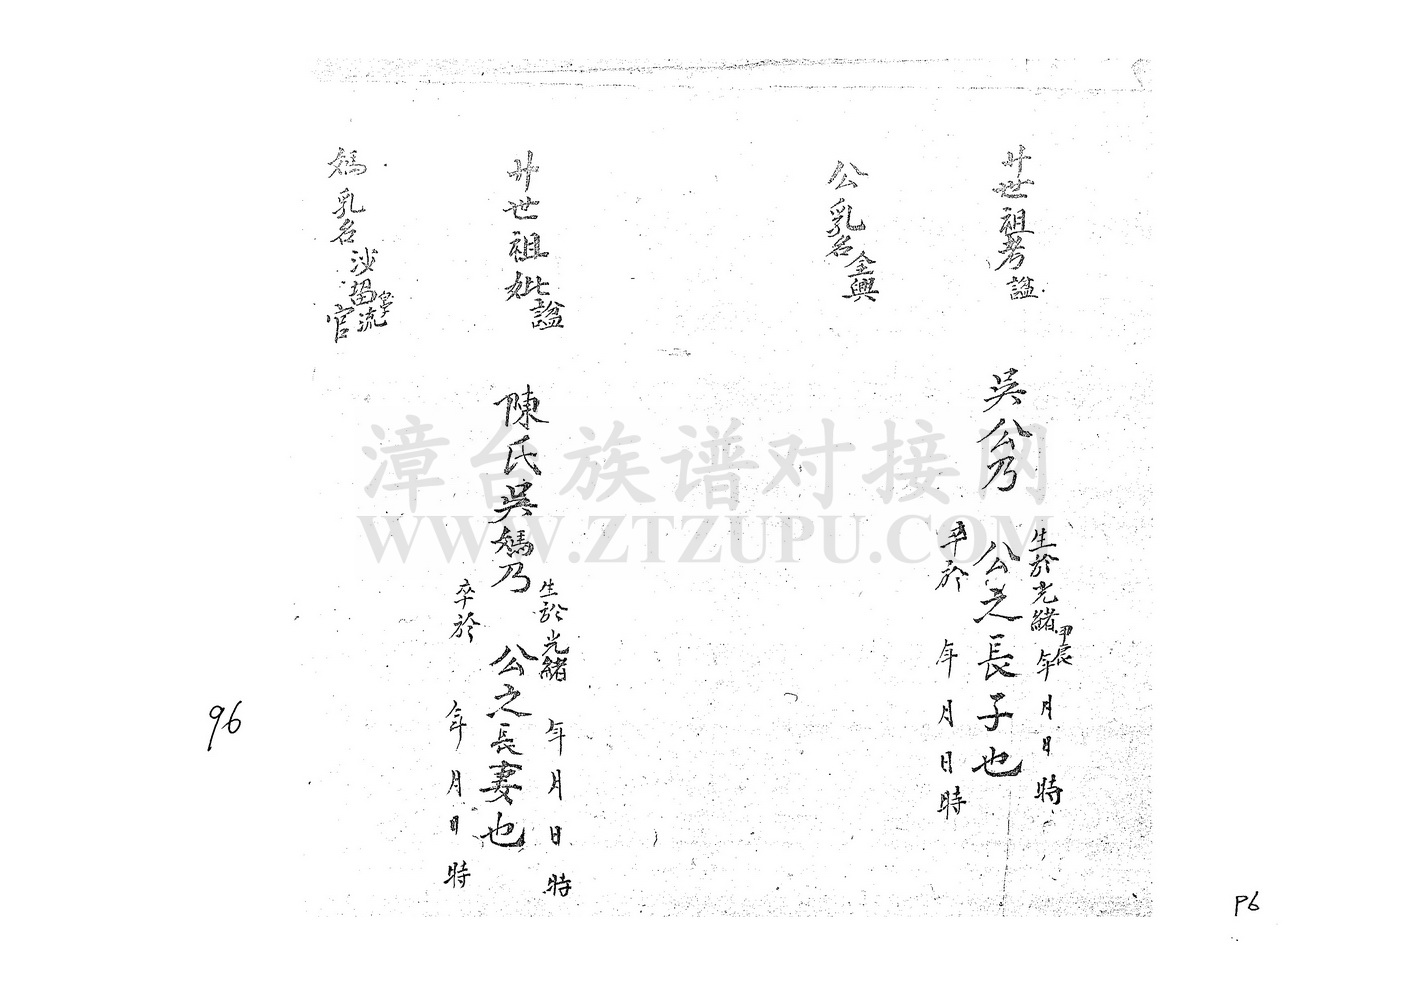 廿世祖考謚
吳公乃
公之長子也
生於光緒甲辰年月日時
卒於年月日時
公乳名金興
廿世祖妣謚
陳氏吳媽乃
公之長妻也
生於光緒年月日時
卒於年月日時
媽乳名沙
流
官
漳台族谱对接网
WWW.ZTZUPU.COM
96
P6